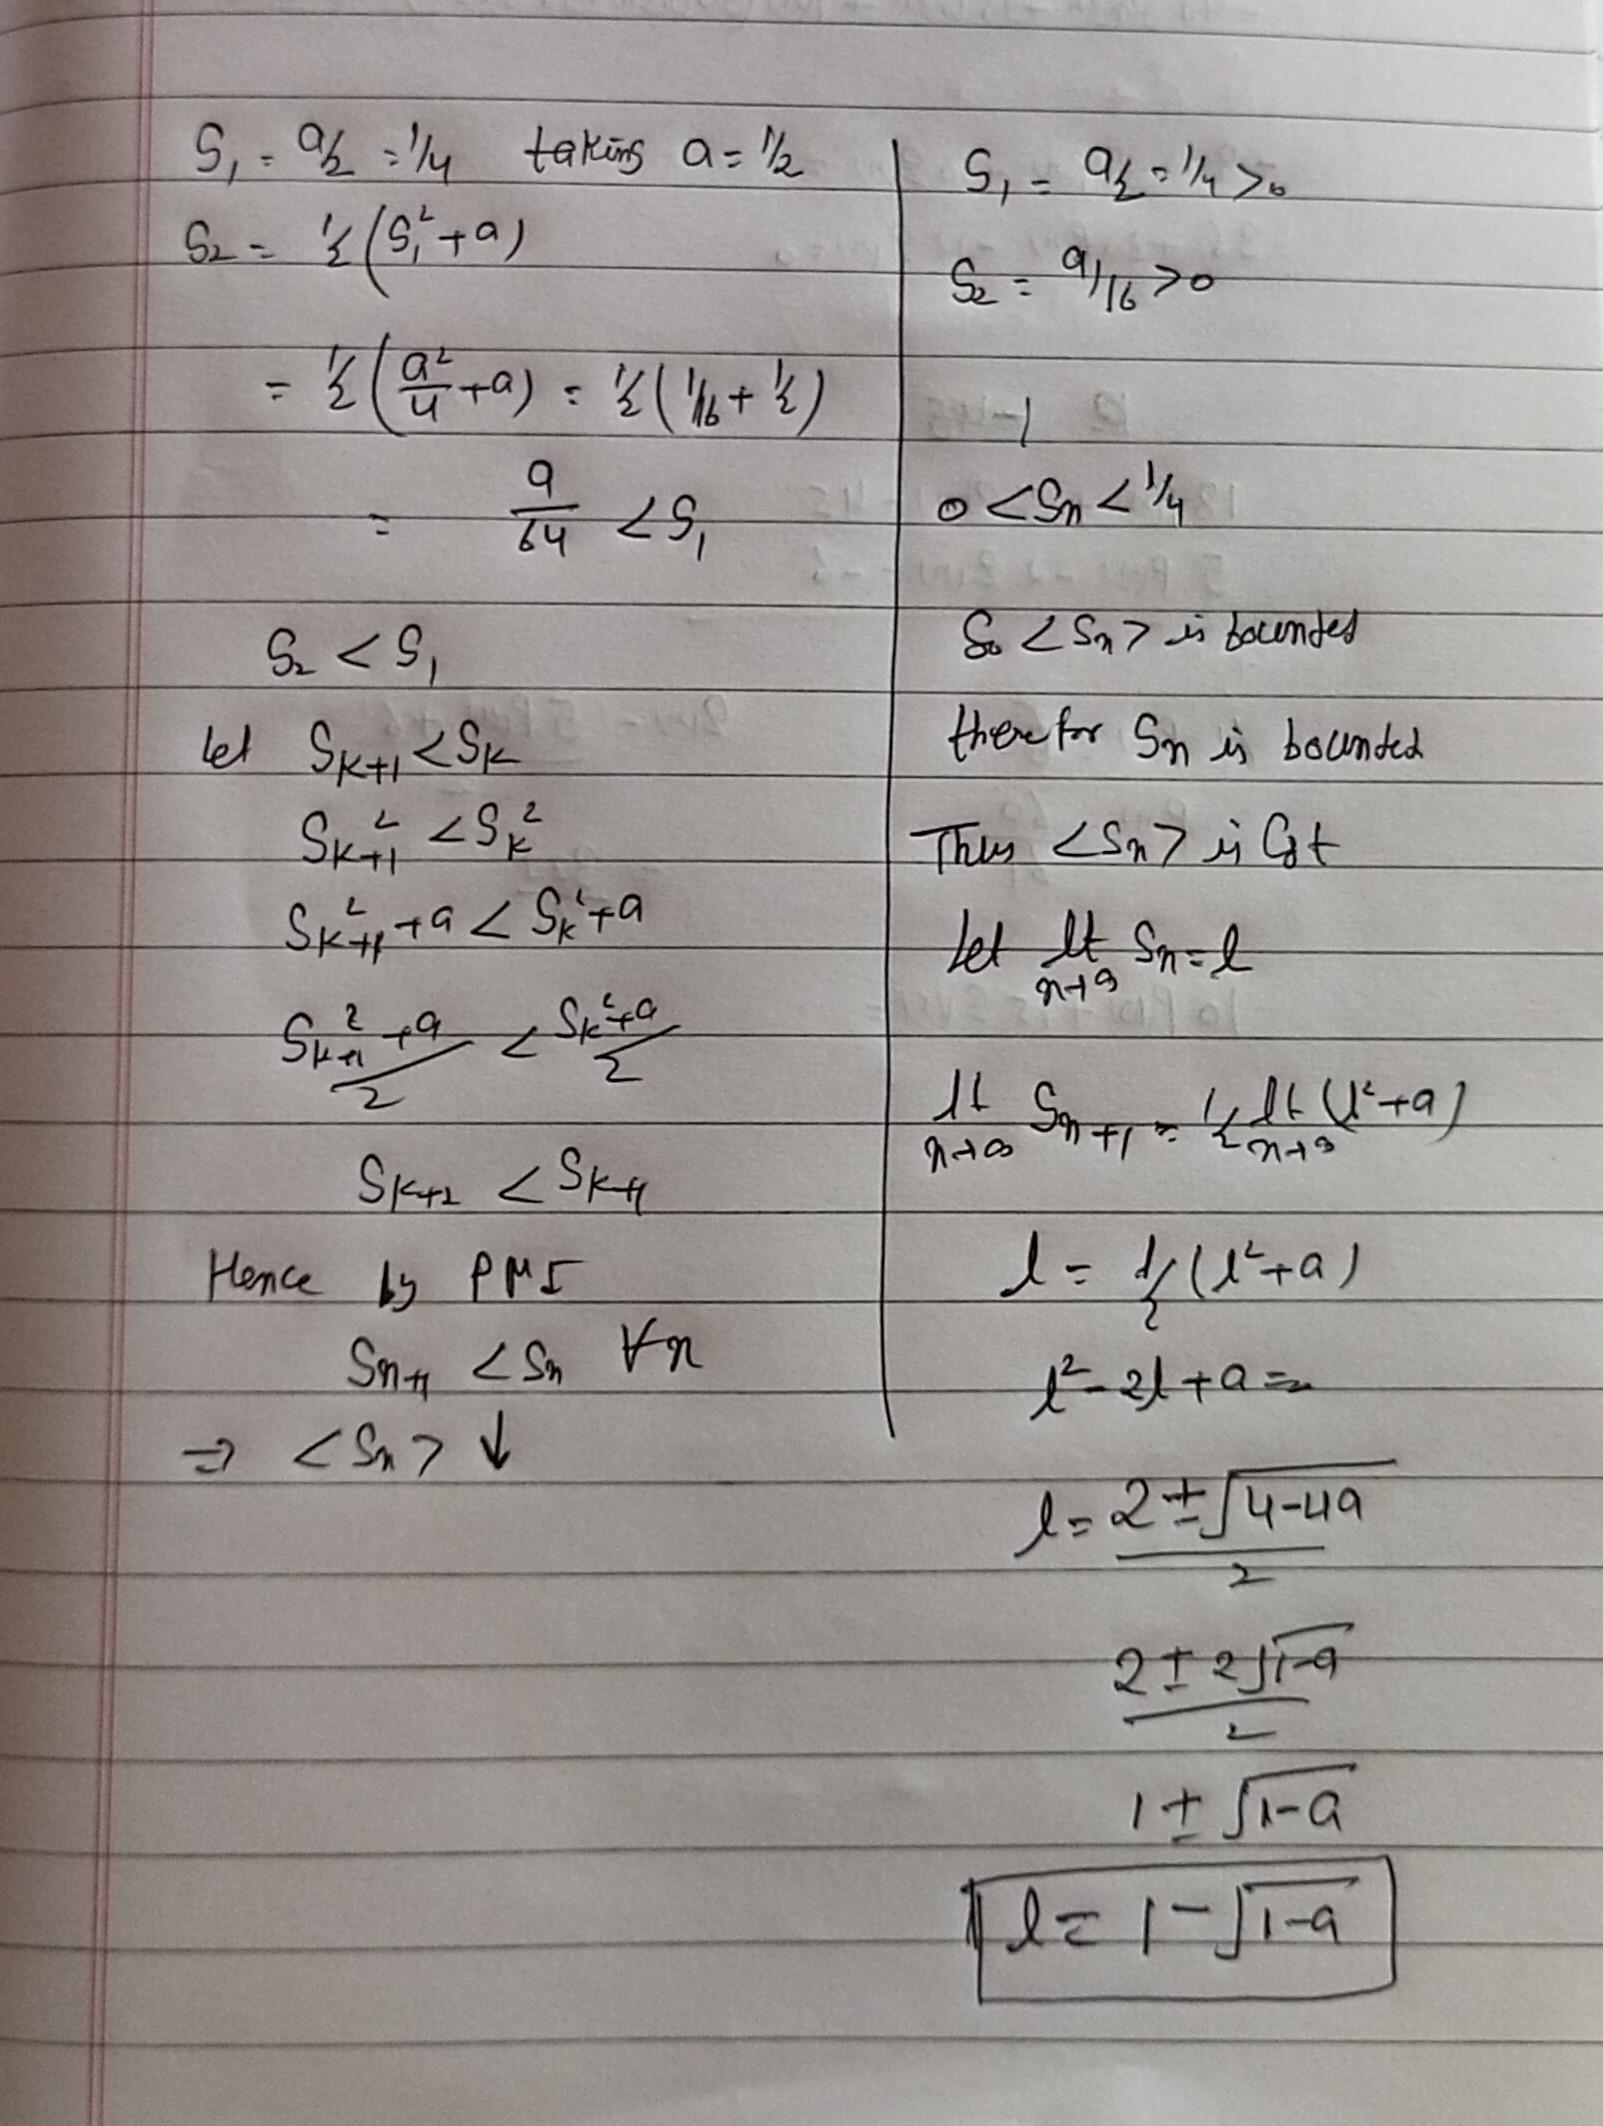 S₁ = a/2 = 1/4 taking a = 1/2
S₂ = 1/2 (S₁² + a)
= 1/2 (a²/4 + a) = 1/2 (1/16 + 1/2)
= 9/64 < S₁
S₂ < S₁
let Sk+1 < Sk
Sk+1² < Sk²
Sk+1² + a < Sk² + a
(Sk+1² + a)/2 < (Sk² + a)/2
Sk+2 < Sk+1
Hence by PMI
Sn+1 < Sn ∀n
⇒ <Sn> ↓
S₁ = a/2 = 1/4 > 0
S₂ = 9/16 > 0
1
0 < Sn < 1/4
So <Sn> is bounded
there for Sn is bounded
Thus <Sn> is Cgt
Let lt n→∞ Sn = l
lt n→∞ Sn+1 = 1/2 lt n→∞ (l² + a)
l = 1/2 (l² + a)
l² - 2l + a =
l = (2 ± √(4-4a))/2
(2 ± 2√(1-a))/2
1 ± √(1-a)
l = 1 - √(1-a)